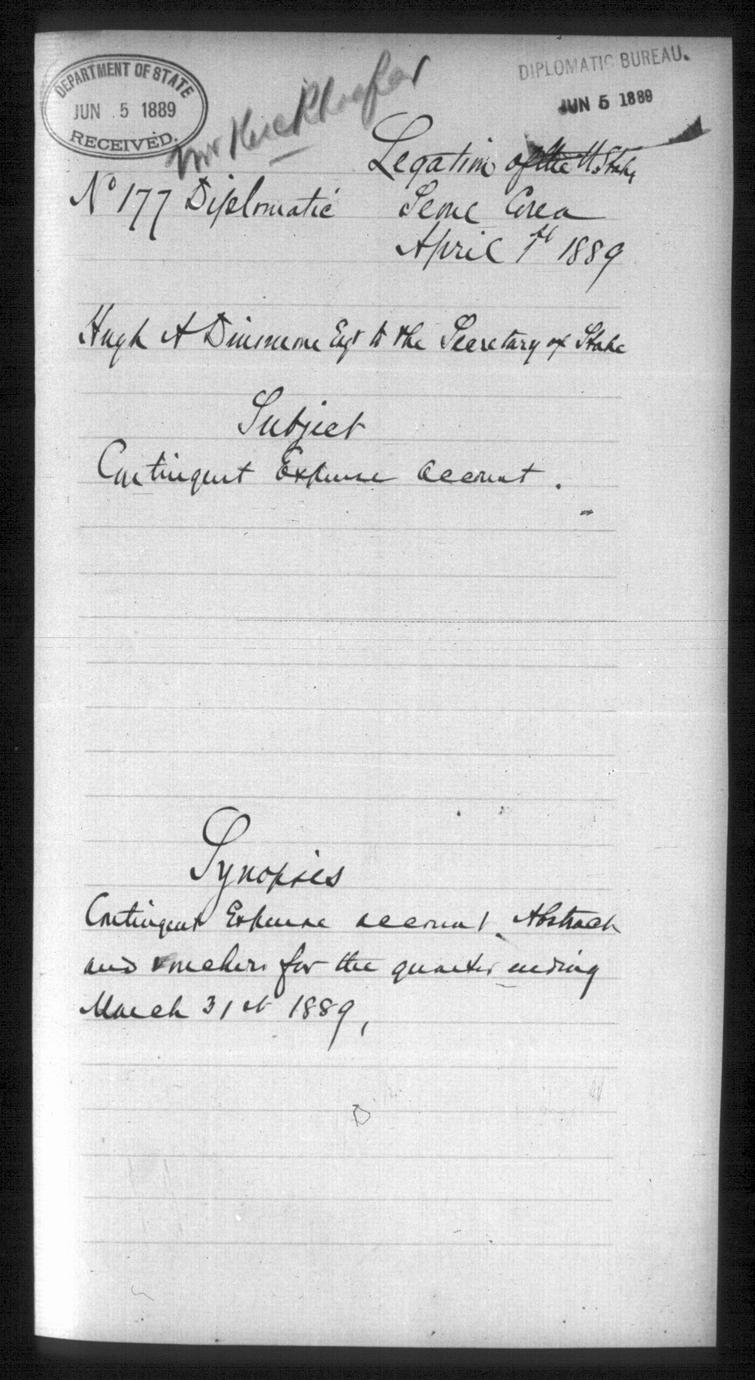 DEPARTMENT OF STATE
JUN 5 1889
RECEIVED.
DIPLOMATIC BUREAU.
JUN 5 1889
Mr Kieckhoefer
Legation of the U. States
No 177 Diplomatic
Seoul Corea
April 1st 1889
Hugh A Dinsmore Esqr to the Secretary of State
Subject
Contingent Expense account.
Synopsis
Contingent Expense account. Abstract
and vouchers for the quarter ending
March 31st 1889,